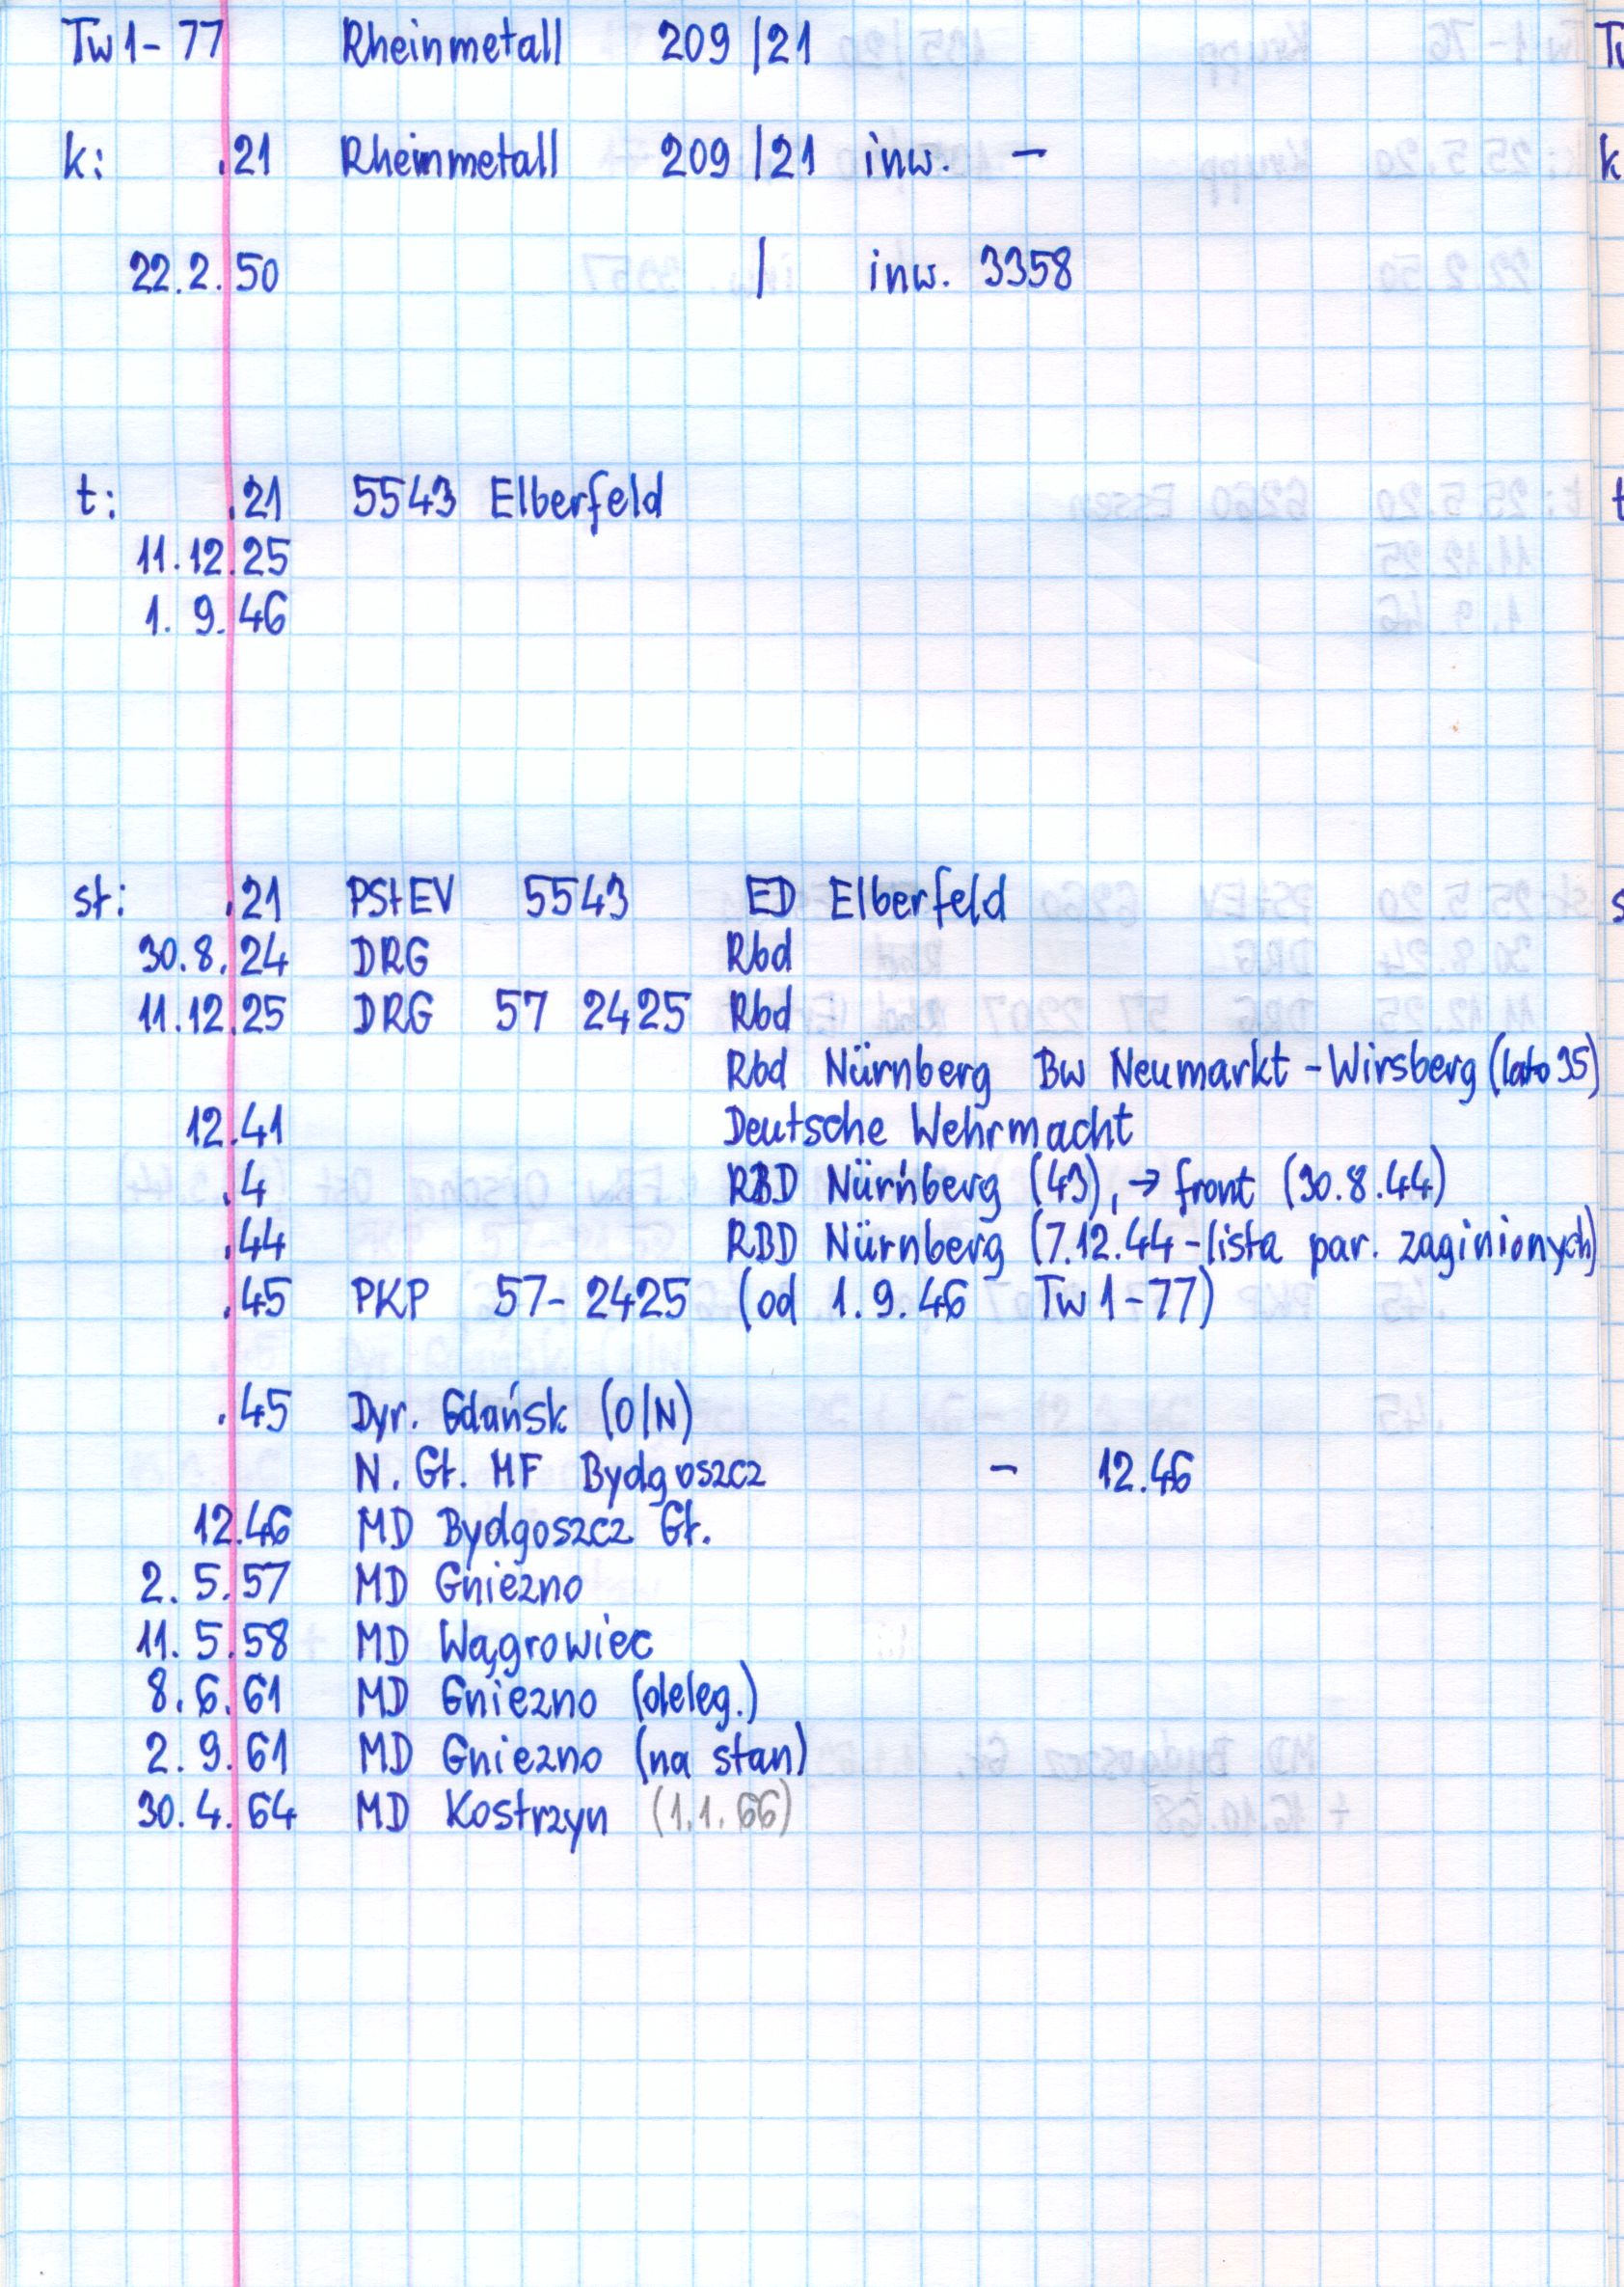 Tw 1-77 Rheinmetall 209 /21
k: .21 Rheinmetall 209 /21 inw. -
22.2.50 / inw. 3358
t: .21 5543 Elberfeld
11.12.25
1.9.46
st: .21 PStEV 5543 ED Elberfeld
30.8.24 DRG Rbd
11.12.25 DRG 57 2425 Rbd
Rbd Nürnberg Bw Neumarkt-Wirsberg (lato 35)
12.41 Deutsche Wehrmacht
.4 RBD Nürnberg (43), → front (30.8.44)
.44 RBD Nürnberg (7.12.44-lista par. zaginionych)
.45 PKP 57-2425 (od 1.9.46 Tw 1-77)
.45 Dyr. Gdańsk (O/N)
N. Gł. MF Bydgoszcz - 12.46
12.46 MD Bydgoszcz Gł.
2.5.57 MD Gniezno
11.5.58 MD Wągrowiec
8.6.61 MD Gniezno (deleg.)
2.9.61 MD Gniezno (na stan)
30.4.64 MD Kostrzyn (1.1.66)